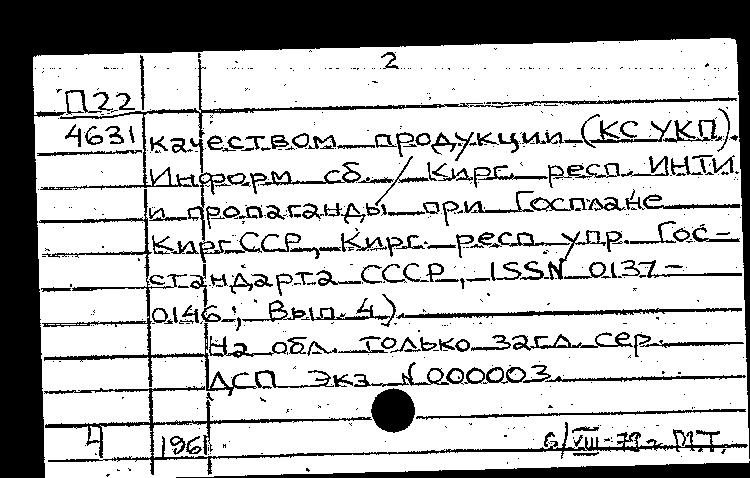 2
П22
4631
качеством продукции (КС УКП).
Информ. сб. / Кирг. респ. ИНТИ
и пропаганды при Госплане
КиргССР, Кирг. респ. упр. Гос-
стандарта СССР, ISSN 0137-
0146; Вып. 4).
На обл. только загл. сер.
ДСП Экз N 000003.
4 1961 6/VIII-79г. М.Т.